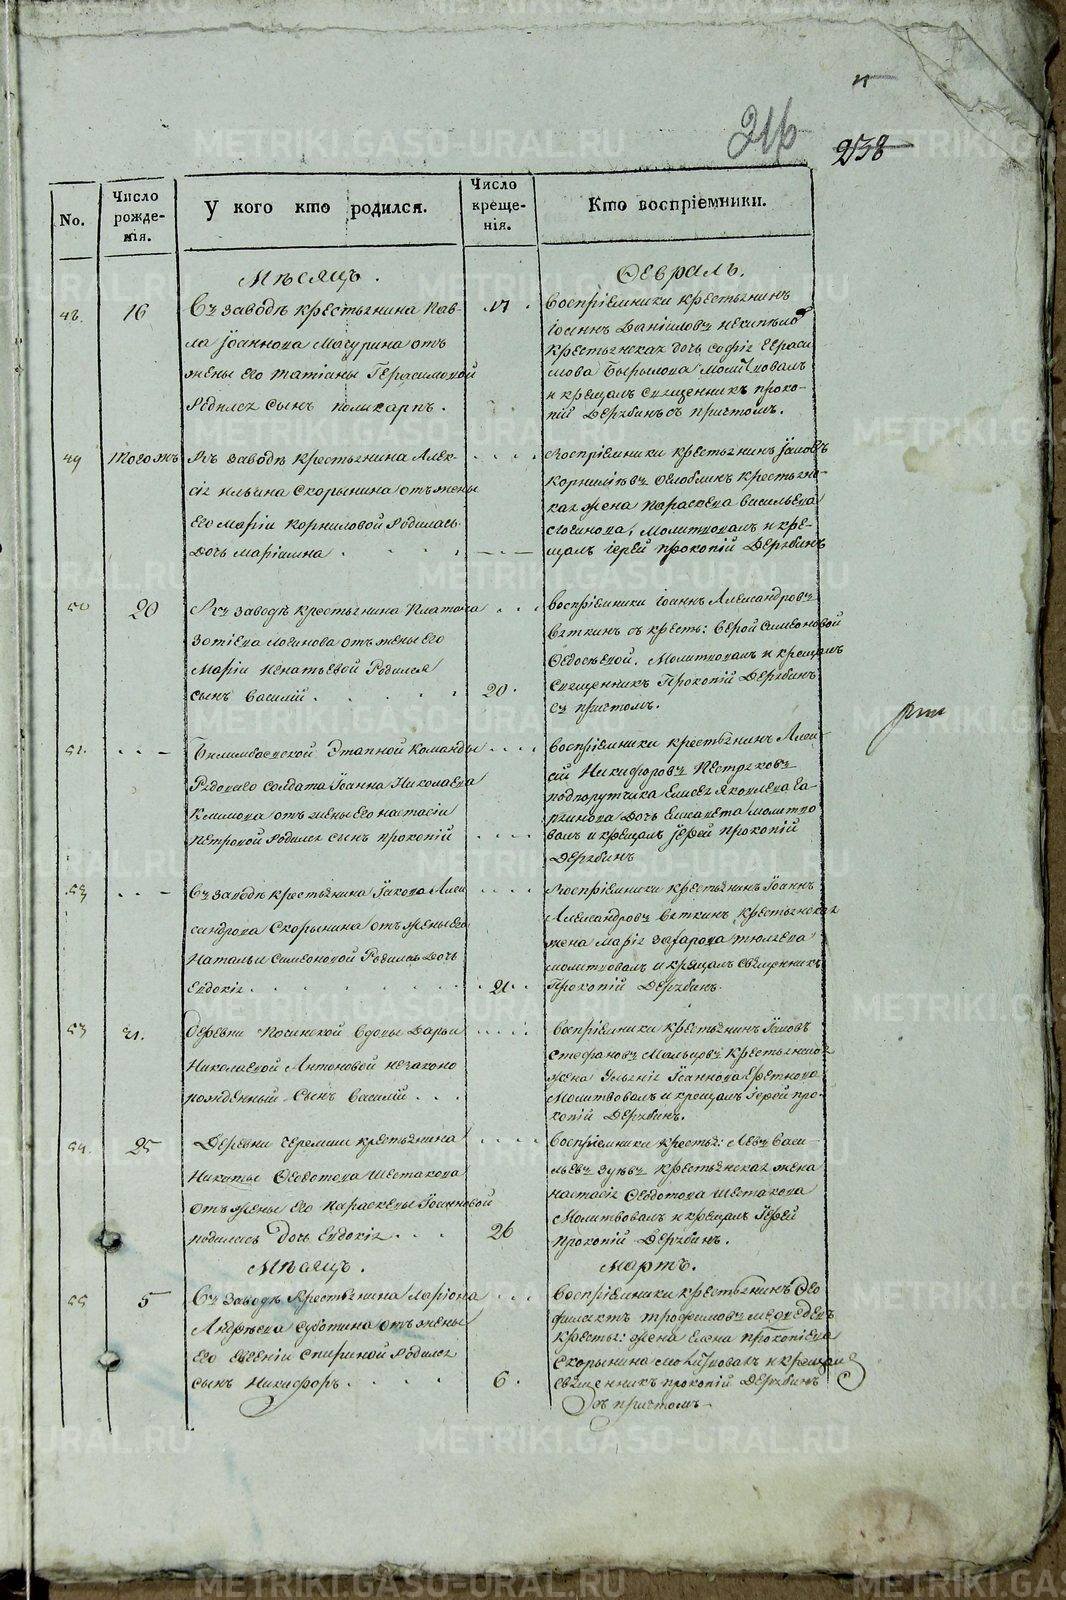 216
238
No.
Число рожде-
нія.
У кого кто родился.
Число креще-
нія.
Кто воспріемники.
Мѣсяцъ.
Февраль.
48.
16
Въ заводѣ крестьянина Пав-
ла Іоаннова Мачурина отъ
жены его Татіаны Герасимовой
Родился сынъ поликарпъ.
17.
Воспріемники крестьянинъ
іоаннъ Даніиловъ
крестьянская дочь софія Гераси
мова Молитвовалъ
и крещалъ Священникъ проко-
пій Дерябинъ съ причтомъ.
49
Того жъ
Въ заводѣ крестьянина Алек-
сія ильина Скорынина отъ жены
его Маріи Корниловой Родилась
дочь маріамна
Воспріемники крестьянинъ Іаковъ
Корниліевъ Оглоблинъ крестьянс-
кая жена параскева васильева
Логинова, Молитвовалъ и кре-
щалъ іерей прокопій Дерябинъ
50
20
Въ заводѣ крестьянина Платона
Зотіева Логинова отъ жены его
Маріи игнатьевой Родился
сынъ Василій.
20.
Воспріемники іоаннъ Александровъ
Вяткинъ съ кресть: Верой Симеоновой
Ѳедосѣевой. Молитвовалъ и крещалъ
Священникъ Прокопій Дерябинъ
съ причтомъ.
51.
Билимбаевской Этапной Команды
Рядоваго солдата Іоанна Николаева
Климова отъ жены его настасіи
Петровой Родился сынъ прокопій
Воспріемники крестьянинъ Алек-
сій Никифоровъ Пестряковъ
подпорутчика Елисея Яковлева
дочь Елисавета молитво
валъ и крещалъ іерей прокопій
Дерябинъ
52
Въ заводѣ крестьянина Іакова Алек
сандрова Скорынина отъ жены его
Натальи Симеоновой Родилась дочь
Евдокія.
21.
Воспріемники крестьянинъ Іоаннъ
Александровъ Вяткинъ крестьянская
жена Марія Захарова
молитвовалъ и крещалъ Священникъ
Прокопій Дерябинъ.
53
21.
Деревни вдовы Дарьи
Николаевой Антоновой незаконо
рожденный сынъ Василій.
Воспріемники крестьянинъ Іаковъ
Стефановъ Мальцовъ крестьянская
жена Ульянія Іоаннова
Молитвовалъ и крещалъ іерей про-
копій Дерябинъ.
54.
25
Деревни Черемши крестьянина
Никиты Ѳеодотова Шестакова
отъ жены его параскевы Іоанновой
родилась Дочь Евдокія.
26
Воспріемники кресть: Левъ Васи-
льевъ Зуевъ крестьянская жена
настасія Ѳеодотова Шестакова
Молитвовалъ и крещалъ іерей
Прокопій Дерябинъ.
Мѣсяцъ.
Мартъ.
55
5
Въ заводѣ крестьянина Ларіона
Андреева Суботина отъ жены
его Евгеніи Спириной Родился
сынъ Никифоръ.
6.
Воспріемники крестьянинъ Ѳео
филактъ трофимовъ медведевъ
кресть: жена Елена прокопіева
Скорынина молитвовалъ и крещалъ
священникъ прокопій Дерябинъ
съ причтомъ